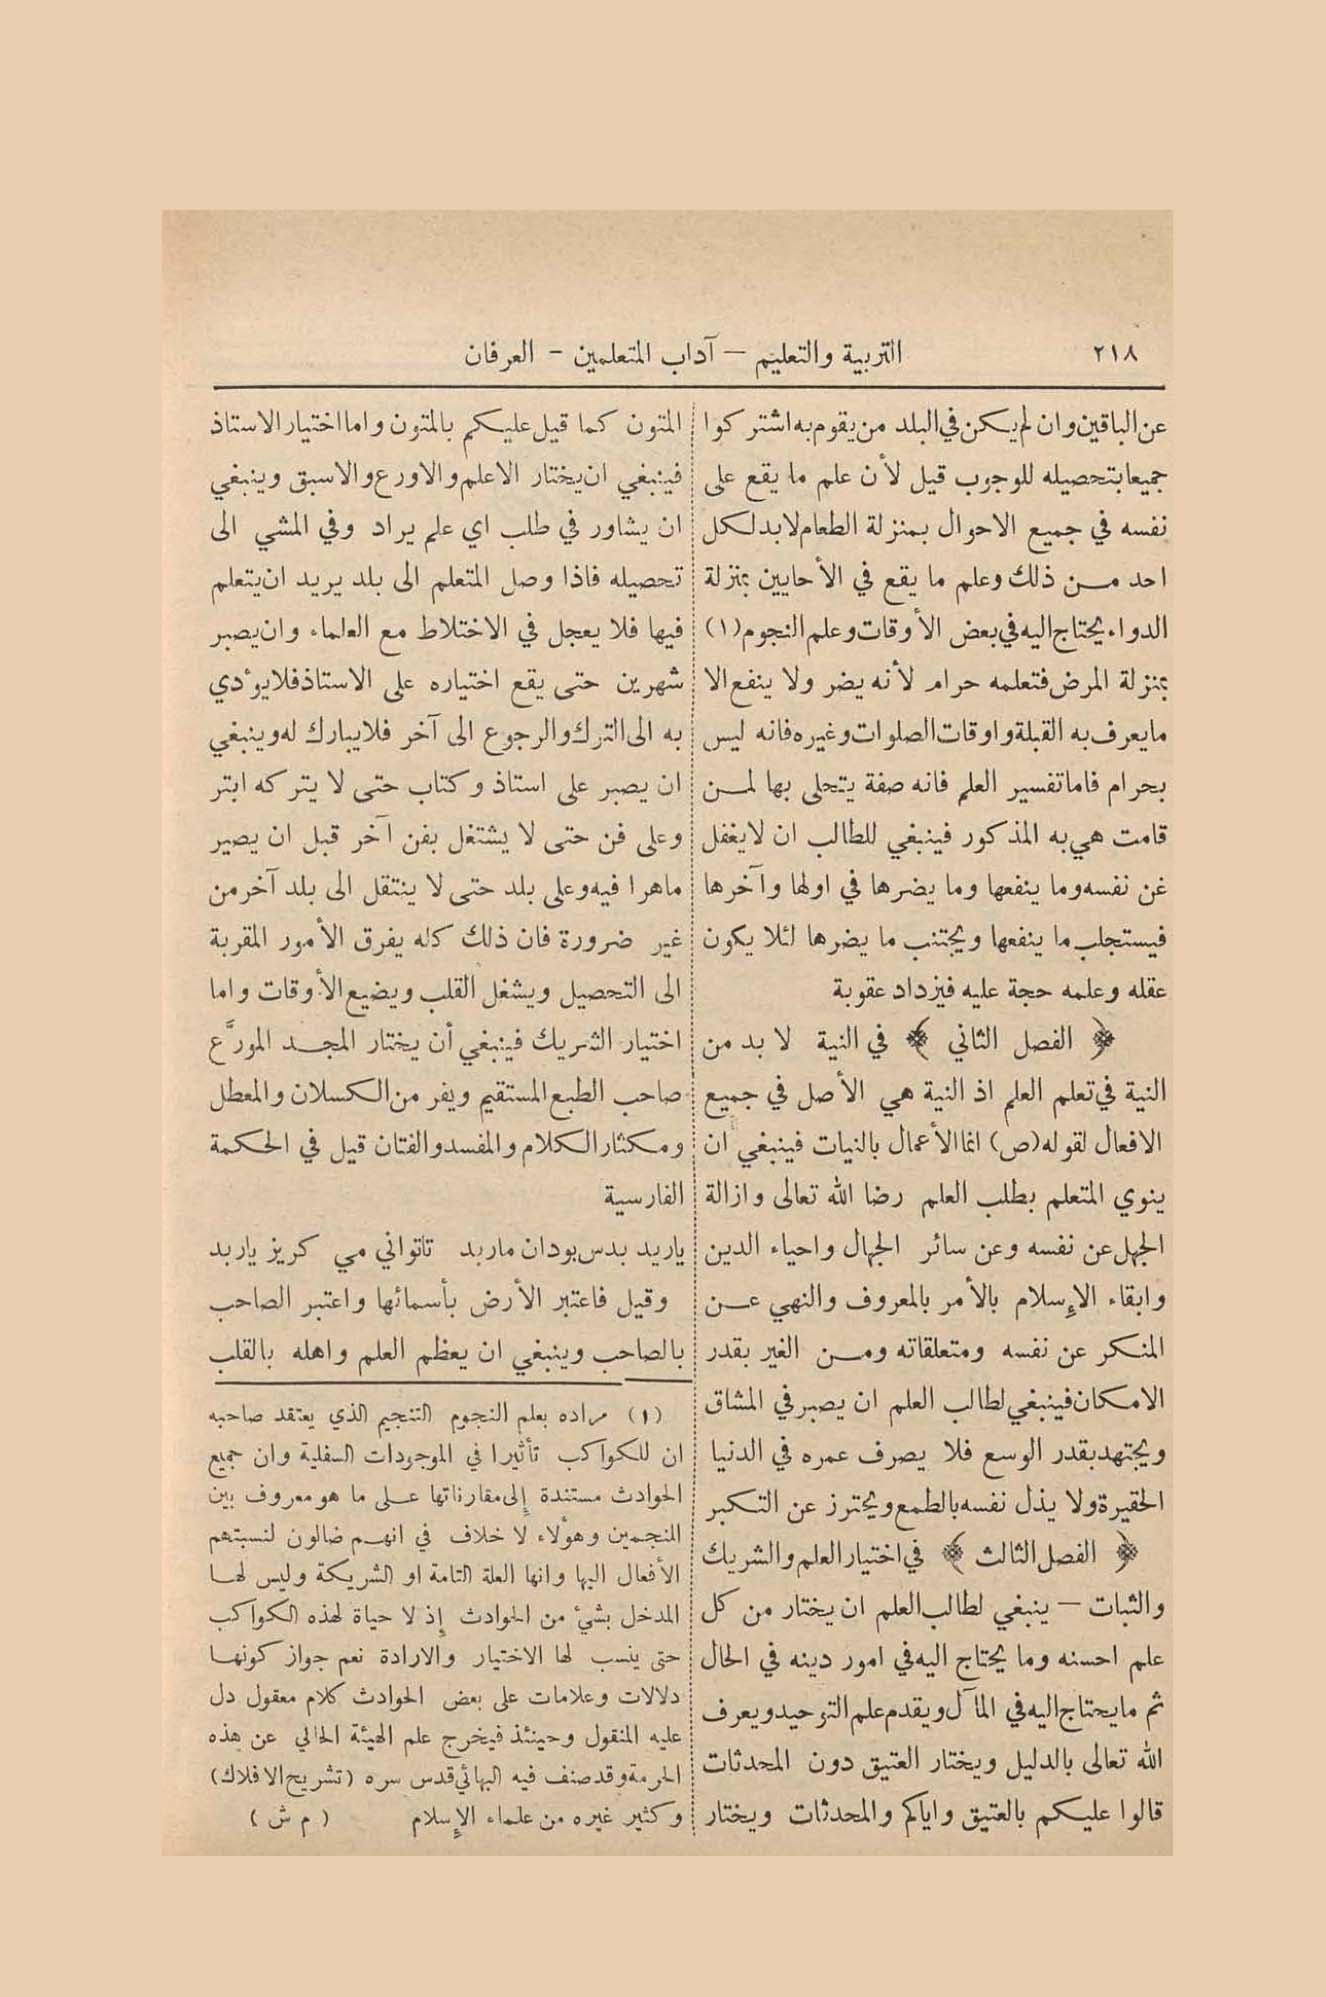 ٢١٨
التربية والتعليم — آداب المتعلمين - العرفان
عن الباقين وان لم يكن في البلد من يقوم به اشتركوا
جميعا بتحصيله للوجوب قيل لأن علم ما يقع على
نفسه في جميع الاحوال بمنزلة الطعام لا بد لكل
احد من ذلك وعلم ما يقع في الأحايين بمنزلة
الدواء يحتاج اليه في بعض الأوقات وعلم النجوم (١)
بمنزلة المرض فتعلمه حرام لأنه يضر ولا ينفع الا
ما يعرف به القبلة واوقات الصلوات وغيره فانه ليس
بحرام فاما تفسير العلم فانه صفة يتحلى بها لمن
قامت هي به المذكور فينبغي للطالب ان لا يغفل
غن نفسه وما ينفعها وما يضرها في اولها وآخرها
فيستجلب ما ينفعها ويجتنب ما يضرها لئلا يكون
عقله وعلمه حجة عليه فيزداد عقوبة
﴿ الفصل الثاني ﴾ في النية لا بد من
النية في تعلم العلم اذ النية هي الأصل في جميع
الافعال لقوله (ص) انما الأعمال بالنيات فينبغي ان
ينوي المتعلم بطلب العلم رضا الله تعالى وازالة
الجهل عن نفسه وعن سائر الجهال واحياء الدين
وابقاء الإسلام بالأمر بالمعروف والنهي عن
المنكر عن نفسه ومتعلقاته ومن الغير بقدر
الامكان فينبغي لطالب العلم ان يصبر في المشاق
ويجتهد بقدر الوسع فلا يصرف عمره في الدنيا
الحقيرة ولا يذل نفسه بالطمع ويحترز عن التكبر
﴿ الفصل الثالث ﴾ في اختيار العلم والشريك
والثبات — ينبغي لطالب العلم ان يختار من كل
علم احسنه وما يحتاج اليه في امور دينه في الحال
ثم ما يحتاج اليه في المآل ويقدم علم التوحيد ويعرف
الله تعالى بالدليل ويختار العتيق دون المحدثات
قالوا عليكم بالعتيق واياكم والمحدثات ويختار
المتون كما قيل عليكم بالمتون واما اختيار الاستاذ
فينبغي ان يختار الاعلم والاورع والاسبق وينبغي
ان يشاور في طلب اي علم يراد وفي المشي الى
تحصيله فاذا وصل المتعلم الى بلد يريد ان يتعلم
فيها فلا يعجل في الاختلاط مع العلماء وان يصبر
شهرين حتى يقع اختياره على الاستاذ فلا يوءدي
به الى الترك والرجوع الى آخر فلا يبارك له وينبغي
ان يصبر على استاذ وكتاب حتى لا يتركه ابتر
وعلى فن حتى لا يشتغل بفن آخر قبل ان يصير
ماهرا فيه وعلى بلد حتى لا ينتقل الى بلد آخر من
غير ضرورة فان ذلك كله يفرق الأمور المقربة
الى التحصيل ويشغل القلب ويضيع الأوقات واما
اختيار الشريك فينبغي أن يختار المجد المورَّع
صاحب الطبع المستقيم ويفر من الكسلان والمعطل
ومكثار الكلام والمفسد والفتان قيل في الحكمة
الفارسية
ياربد بدس بودان ماربد تاتواني مي كريز ياربد
وقيل فاعتبر الأرض بأسمائها واعتبر الصاحب
بالصاحب وينبغي ان يعظم العلم واهله بالقلب
(١) مراده بعلم النجوم التنجيم الذي يعتقد صاحبه
ان للكواكب تأثيرا في الموجودات السفلية وان جميع
الحوادث مستندة إلى مقارناتها على ما هو معروف بين
المنجمين وهوءلاء لا خلاف في انهم ضالون لنسبتهم
الأفعال اليها وانها العلة التامة او الشريكة وليس لها
المدخل بشيء من الحوادث إذ لا حياة لهذه الكواكب
حتى ينسب لها الاختيار والارادة نعم جواز كونها
دلالات وعلامات على بعض الحوادث كلام معقول دل
عليه المنقول وحينئذ فيخرج علم الهيئة الحالي عن هذه
الحرمة وقد صنف فيه البهائي قدس سره (تشريح الافلاك)
وكثير غيره من علماء الإسلام ( م ش )